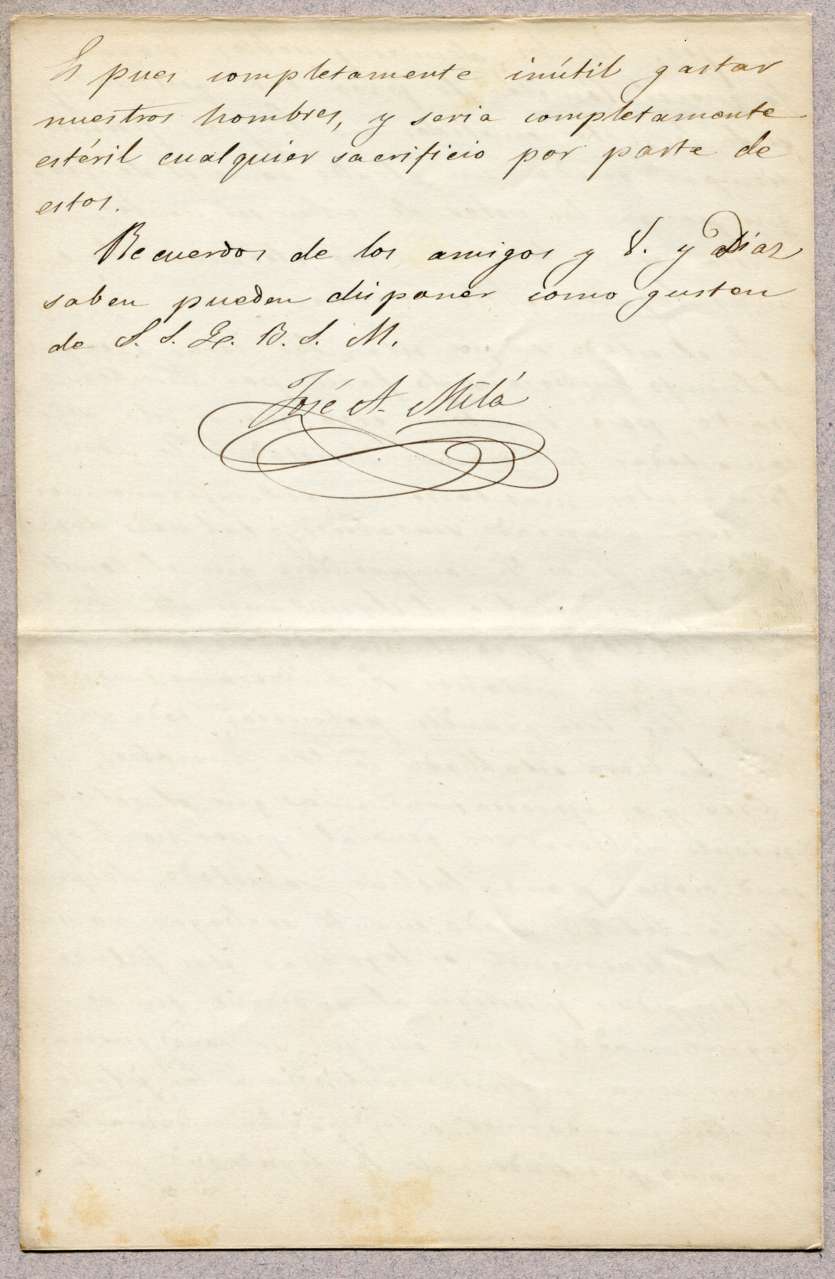 Es pues completamente inútil gastar
nuestros hombres, y seria completamente
estéril cualquier sacrificio por parte de
estos.
Recuerdos de los amigos y V. y Díaz
saben pueden disponer como gusten
de S. S. Q. B. S. M.
José A. Milá